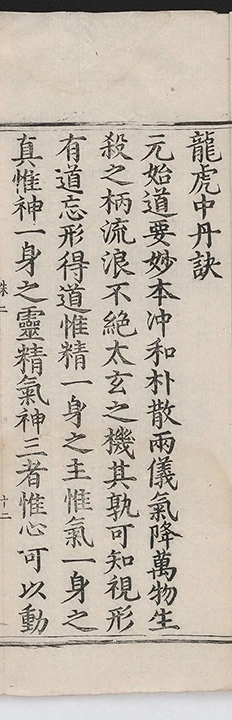 龍虎中丹訣
元始道要妙本冲和朴散兩儀氣降萬物生
殺之柄流浪不絕太玄之機其孰可知視形
有道忘形得道惟精一身之主惟氣一身之
真惟神一身之靈精氣神三者惟心可以動